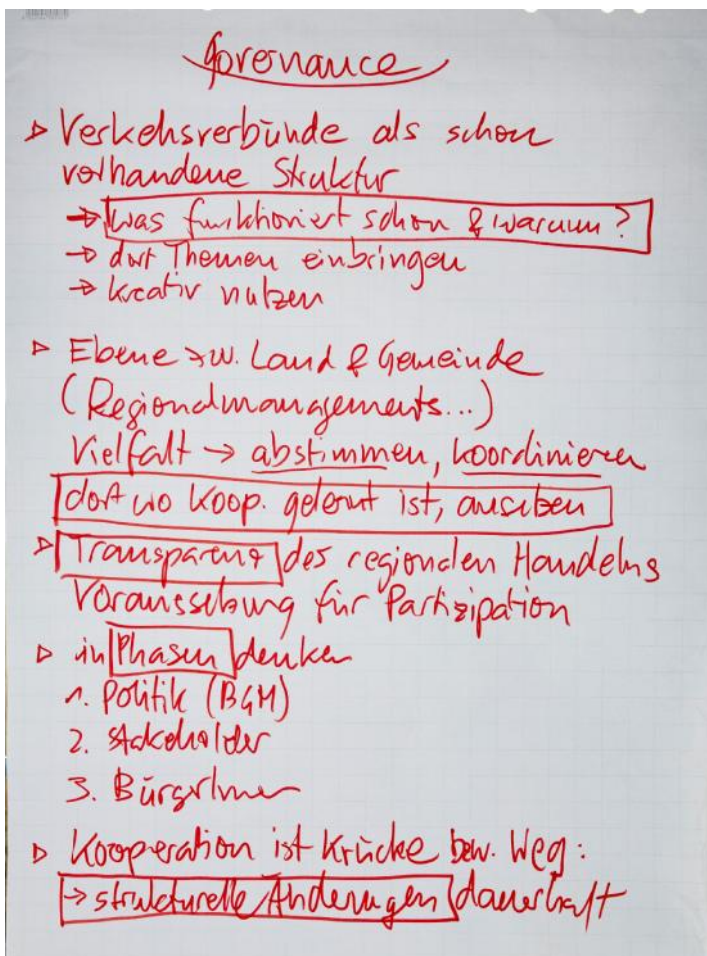 Governance
▷ Verkehrsverbünde als schon
vorhandene Struktur
→ was funktioniert schon & warum?
→ dort Themen einbringen
→ kreativ nutzen
▷ Ebene zw. Land & Gemeinde
(Regionalmanagements...)
Vielfalt → abstimmen, koordinieren
dort wo Koop. gelernt ist, ansetzen
▷ Transparenz des regionalen Handelns
Voraussetzung für Partizipation
▷ in Phasen denken
1. Politik (BGM)
2. Stakeholder
3. BürgerInnen
▷ Kooperation ist Krücke bzw. Weg:
→ strukturelle Änderungen dauerhaft